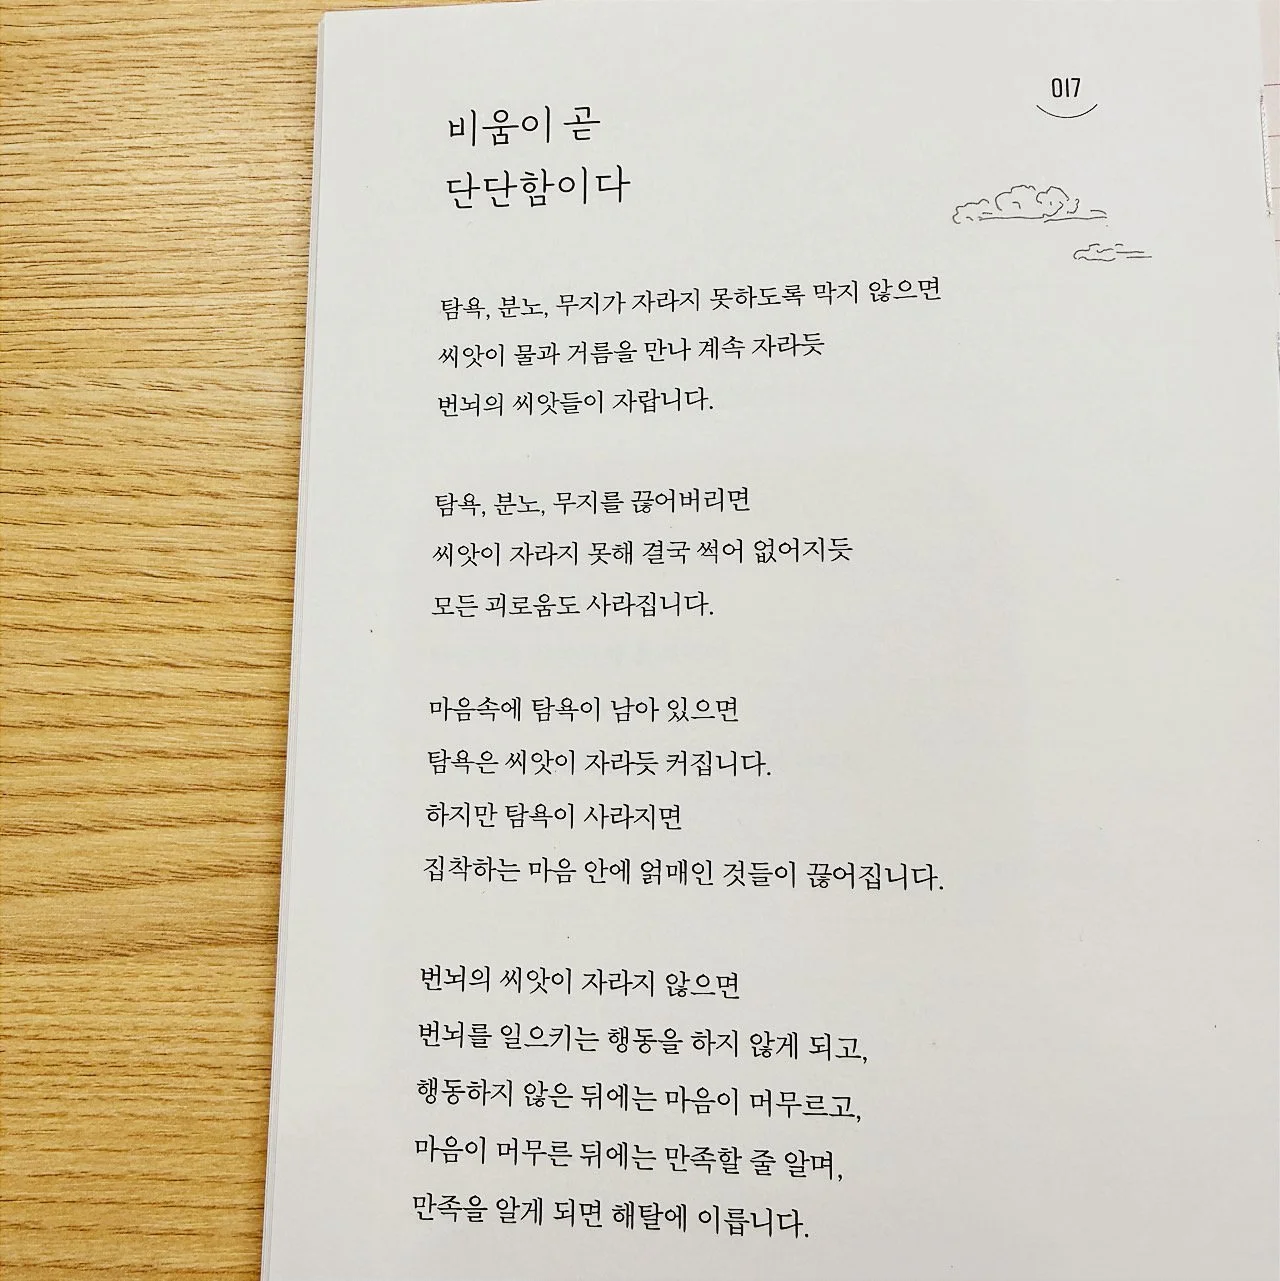 017
비움이 곧
단단함이다
탐욕, 분노, 무지가 자라지 못하도록 막지 않으면
씨앗이 물과 거름을 만나 계속 자라듯
번뇌의 씨앗들이 자랍니다.
탐욕, 분노, 무지를 끊어버리면
씨앗이 자라지 못해 결국 썩어 없어지듯
모든 괴로움도 사라집니다.
마음속에 탐욕이 남아 있으면
탐욕은 씨앗이 자라듯 커집니다.
하지만 탐욕이 사라지면
집착하는 마음 안에 얽매인 것들이 끊어집니다.
번뇌의 씨앗이 자라지 않으면
번뇌를 일으키는 행동을 하지 않게 되고,
행동하지 않은 뒤에는 마음이 머무르고,
마음이 머무른 뒤에는 만족할 줄 알며,
만족을 알게 되면 해탈에 이릅니다.